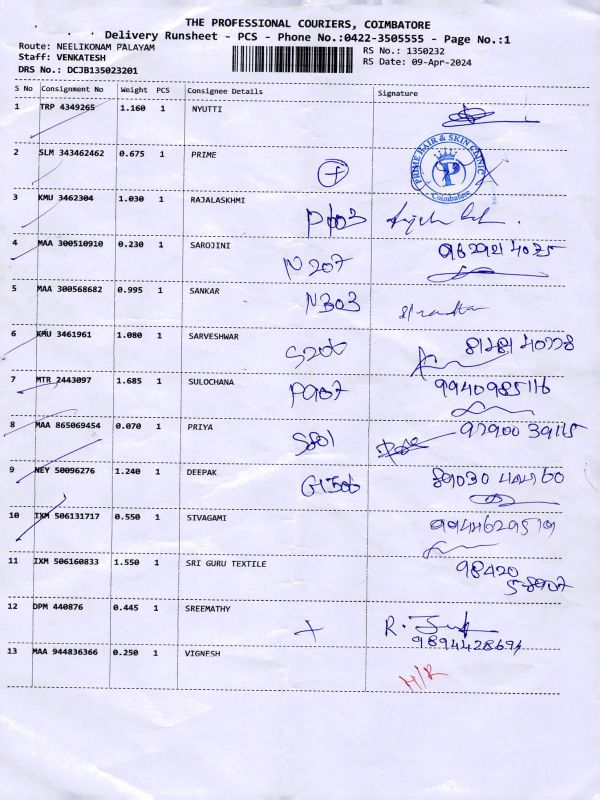 THE PROFESSIONAL COURIERS, COIMBATORE
Delivery Runsheet - PCS - Phone No.:0422-3505555 - Page No.:1
Route: NEELIKONAM PALAYAM
RS No.: 1350232
Staff: VENKATESH
RS Date: 09-Apr-2024
DRS No.: DCJB135023201
S No Consignment No Weight PCS Consignee Details Signature
1 TRP 4349265 1.160 1 NYUTTI
2 SLM 343462462 0.675 1 PRIME
PRIME HAIR & SKIN CLINIC
P
Coimbatore
3 KMU 3462304 1.030 1 RAJALASKHMI
P103
4 MAA 300510910 0.230 1 SAROJINI
N207
5 MAA 300568682 0.995 1 SANKAR
N303
6 KMU 3461961 1.080 1 SARVESHWAR
S206
7 MTR 2443097 1.685 1 SULOCHANA
P907 9940985116
8 MAA 865069454 0.070 1 PRIYA
S801
9 NEY 50096276 1.240 1 DEEPAK
G1506
10 IXM 506131717 0.550 1 SIVAGAMI
11 IXM 506160833 1.550 1 SRI GURU TEXTILE
98420
58907
12 DPM 440876 0.445 1 SREEMATHY
R.
13 MAA 944836366 0.250 1 VIGNESH
H/R